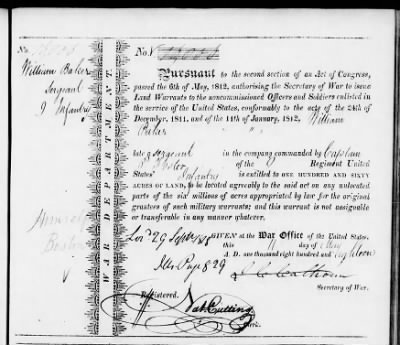 No.
No.
William Baker
Sergeant
9 Infantry
WAR DEPARTMENT.
Pursuant to the second section of an Act of Congress,
passed the 6th of May, 1812, authorising the Secretary of War to issue
Land Warrants to the noncommissioned Officers and Soldiers enlisted in
the service of the United States, conformably to the acts of the 24th of
December, 1811, and of the 11th of January, 1812, William
Baker
late a Sergeant in the company commanded by Captain
of the Regiment United
States' Infantry is entitled to ONE HUNDRED AND SIXTY
ACRES OF LAND, to be located agreeably to the said act on any unlocated
parts of the six millions of acres appropriated by law for the original
grantees of such military warrants; and this warrant is not assignable
or transferable in any manner whatever.
GIVEN at the War Office of the United States,
this 11 day of May
A. D. one thousand eight hundred and Eighteen
J C Calhoun
Secretary of War.
Registered.
Nat Cutting
Clerk.